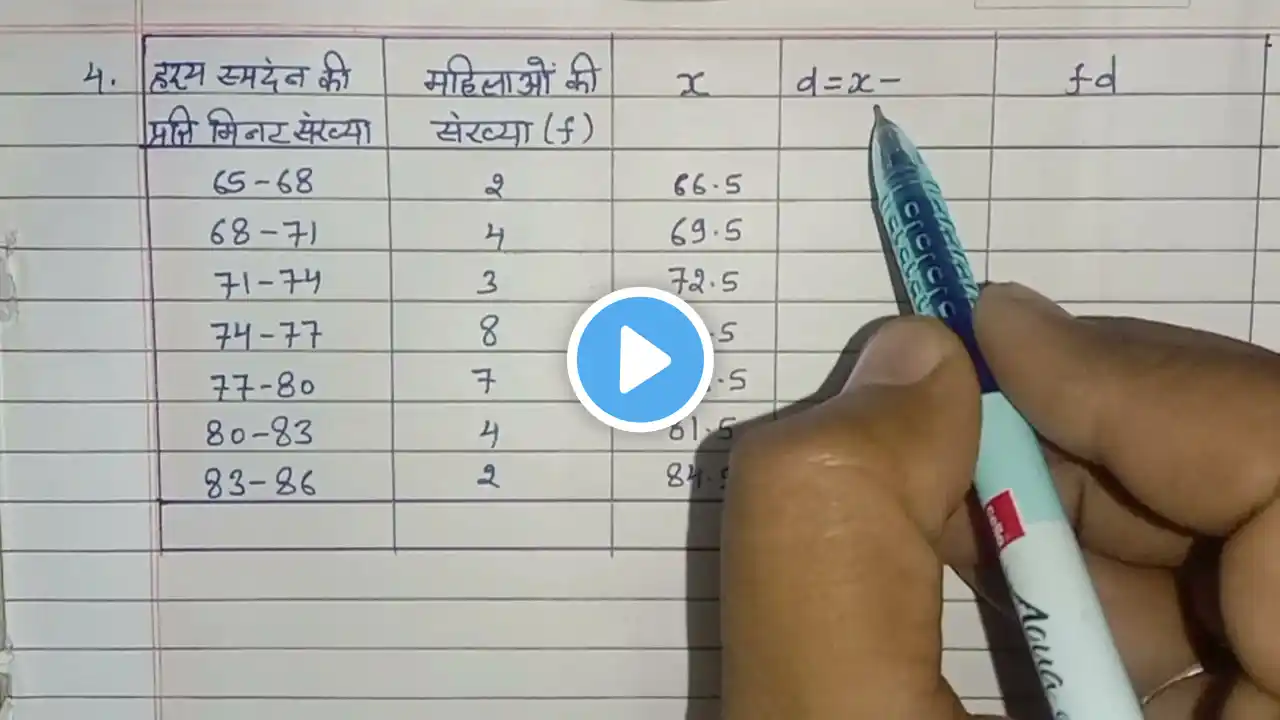 4. हृदय स्पदंन की महिलाओं की x d=x- fd
प्रति मिनट संख्या संख्या (f)
65-68 2 66.5
68-71 4 69.5
71-74 3 72.5
74-77 8 .5
77-80 7 .5
80-83 4 81.5
83-86 2 84.5
cello
Aqua